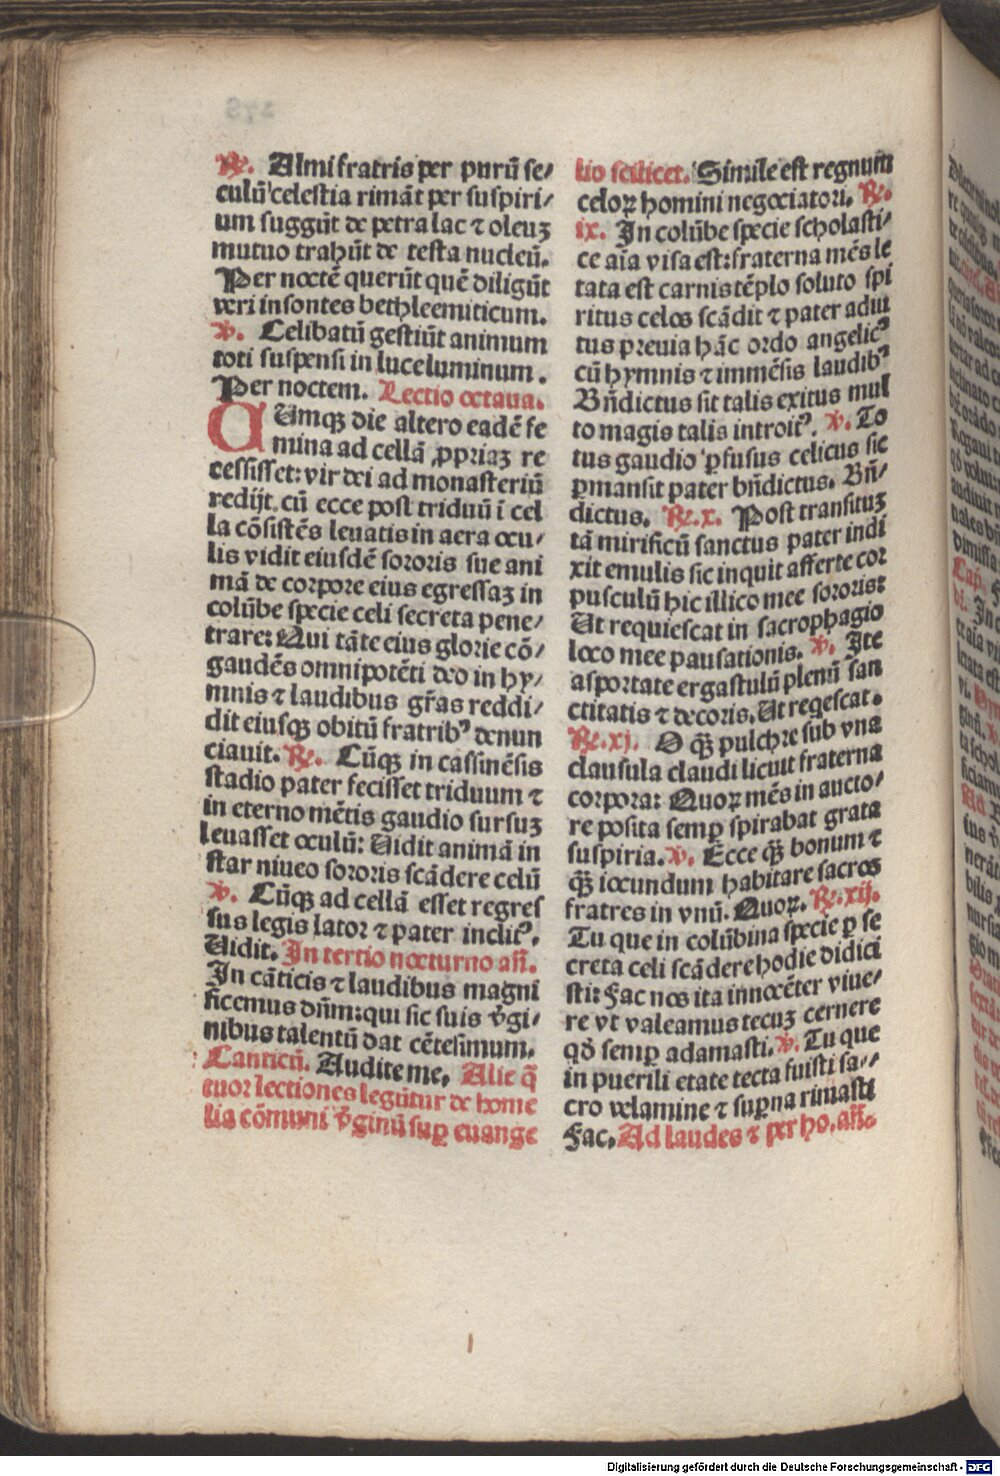 ℟. Almi fratris per purū se⸗
culū celestia rimāt per suspiri⸗
um suggūt de petra lac ⁊ oleuȝ
mutuo trahūt de testa nucleū.
Per noctē querūt quē diligūt
veri insontes bethleemiticum.
℣. Celibatū gestiūt animum
toti suspensi in luce luminum.
Per noctem. Lectio octaua.
CUmqꝫ die altero eadē fe
mina ad cellā ꝓpriaȝ re
cessisset: vir dei ad monasteriū
redijt. cū ecce post triduū ī cel
la cōsistēs leuatis in aera ocu⸗
lis vidit eiusdē sororis sue ani
mā de corpore eius egressaȝ in
colūbe specie celi secreta pene⸗
trare: Qui tāte eius glorie cō⸗
gaudēs omnipotēti deo in hy⸗
mnis ⁊ laudibus gr̄as reddi⸗
dit eiusqꝫ obitū fratribꝰ denun
ciauit. ℟. Cūqꝫ in cassinēsis
stadio pater fecisset triduum ⁊
in eterno mētis gaudio sursuȝ
leuasset oculū: Uidit animā in
star niueo sororis scādere celū
℣. Cūqꝫ ad cellā esset regres
sus legis lator ⁊ pater inclitꝰ.
Uidit. In tertio nocturno an̄.
In cāticis ⁊ laudibus magni
ficemus dn̄m: qui sic suis v̄gi⸗
nibus talentū dat cētesimum.
Canticū. Audite me. Alie q̄
tuor lectiones legūtur de home
lia cōmuni v̄ginū suꝑ euange
lio scilicet. Simile est regnum
celoꝝ homini negociatori. ℟.
ix. In colūbe specie scholasti⸗
ce aīa visa est: fraterna mēs le
tata est carnis tēplo soluto spi
ritus celos scādit ⁊ pater adiu
tus preuia hāc ordo angelicꝰ
cū hymnis ⁊ immēsis laudibꝰ
Bn̄dictus sit talis exitus mul
to magis talis introitꝰ. ℣. To
tus gaudio ꝑfusus celicus sic
ꝑmansit pater bn̄dictus. Bn̄⸗
dictus. ℟. x. Post transituȝ
tā mirificū sanctus pater indi
xit emulis sic inquit afferte cor
pusculū hic illico mee sororis:
Ut requiescat in sacrophagio
loco mee pausationis. ℣. Ite
asportate ergastulū plenū san
ctitatis ⁊ decoris. Ut reqescat.
℟. xj. O q̄ꝫ pulchre sub vna
clausula claudi licuit fraterna
corpora: Quoꝝ mēs in aucto⸗
re posita semꝑ spirabat grata
suspiria. ℣. Ecce q̄ꝫ bonum ⁊
q̄ꝫ iocundum habitare sacros
fratres in vnū. Quoꝝ. ℟. xij.
Tu que in colūbina specie ꝑ se
creta celi scādere hodie didici
sti: Fac nos ita innocēter viue⸗
re vt valeamus tecuȝ cernere
qđ semꝑ adamasti. ℣. Tu que
in puerili etate tecta fuisti sa⸗
cro velamine ⁊ suꝑna rimasti
Fac. Ad laudes ⁊ per ho. an̄.
Digitalisierung gefördert durch die Deutsche Forschungsgemeinschaft - DFG